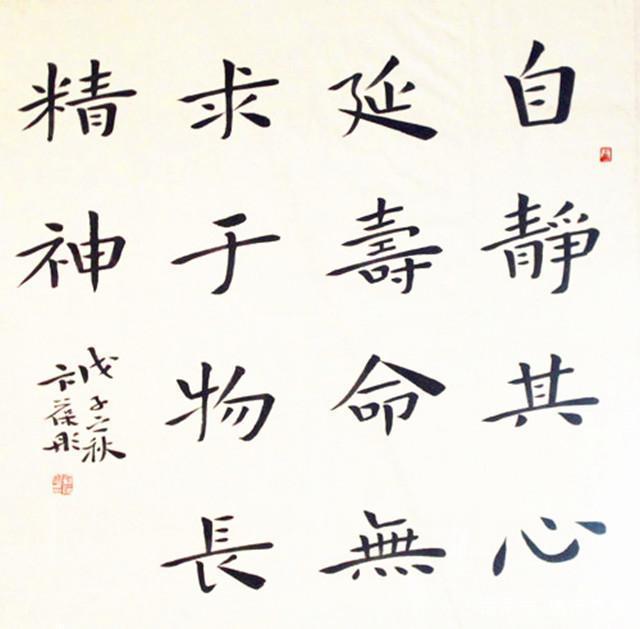 自靜其心
延壽命無
求于物長
精神
戊子之秋
卞葆彤